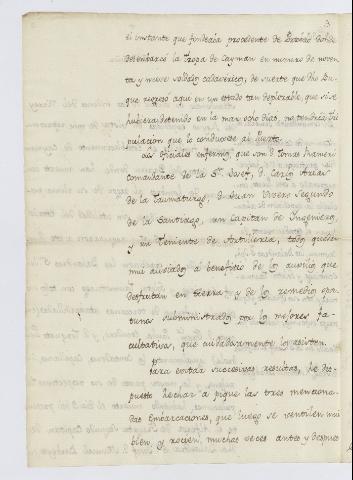 3
el instante que fondeaba procedente de
desembarcò la Tropa de Cayman en numero de noven
ta y nueve soldados cadavericos, de suerte que dho Bu
que regresò aqui en un estado tan deplorable, que si se
hubiera detenido en la mar ocho dias, no tendria tri
pulacion que lo condujese al Puerto.
Los oficiales enfermos, que son D. Tomas
Comandante de la Sn. Josef, D. Carlos Arias
de la Taumaturgo, D. Juan Vivero segundo
de la Santiago, un Capitan de Ingenieros
y un Teniente de Artilleria, todos quedan
mui aliviados à beneficio de los auxilios que
disfrutan en tierra y de los remedios opor
tunos subministrados por los mejores fa
cultativos, que cuidadosamente los asisten.
Para evitar sucesivas resultas, he dis
puesto hechar à pique las tres menciona
das embarcaciones, que luego se ventilen mui
bien, y rocien, muchas veces antes y despues